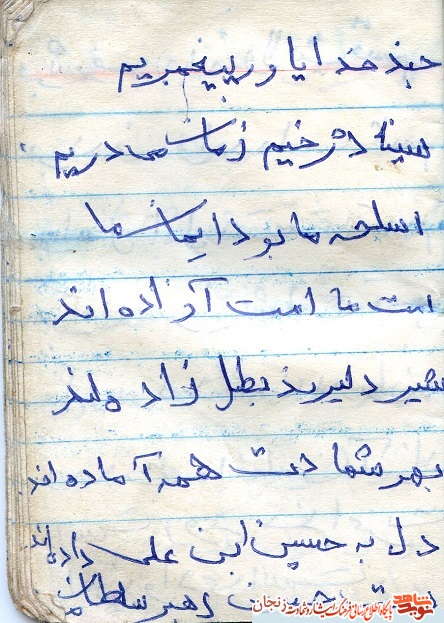 جند خدا یاور پیغمبریم
سینه دژخیم زمان می دریم
اسلحه ما بود ایمان ما
امت ما امت آزاده اند
شیر دلیرند بطل زاده اند
بهر شهادت همه آماده اند
دل به حسین ابن علی داده اند
رهبر سلطان
نوید شاهد
پایگاه اطلاع رسانی فرهنگ ایثار و شهادت زنجان